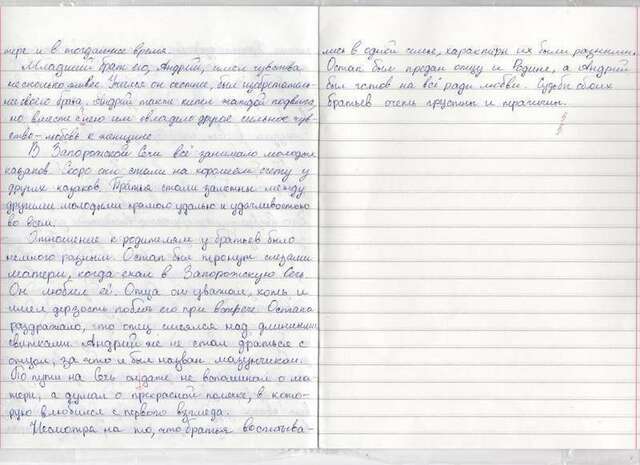 тере и в тогдашнее время.
Младший брат его, Андрий, имел чувства
несколько живее. Учился он охотнее, был изобретатель-
нее своего брата. Андрий также кипел жаждой подвига,
но вместе с нею им овладело другое сильное чув-
ство – любовь к женщине.
В Запорожской Сечи всё занимало молодых
казаков. Скоро они стали на хорошем счету у
других казаков. Братья стали заметны между
другими молодыми прямою удалью и удачливостью
во всем.
Отношение к родителям у братьев было
немного разным. Остап был тронут слезами
матери, когда ехал в Запорожскую Сечь.
Он любил её. Отца он уважал, хоть и
имел дерзость побить его при встрече. Остапа
раздражало, что отец смеялся над длинными
свитками. Андрий же не стал драться с
отцом, за что и был назван мазунчиком.
По пути на Сечь он даже не вспоминал о ма-
тери, а думал о прекрасной полячке, в кото-
рую влюбился с первого взгляда.
Несмотря на то, что братья воспитыва-
лись в одной семье, характеры их были разными.
Остап был предан отцу и Родине, а Андрий
был готов на всё ради любви. Судьбы обоих
братьев очень грустны и трагичны.